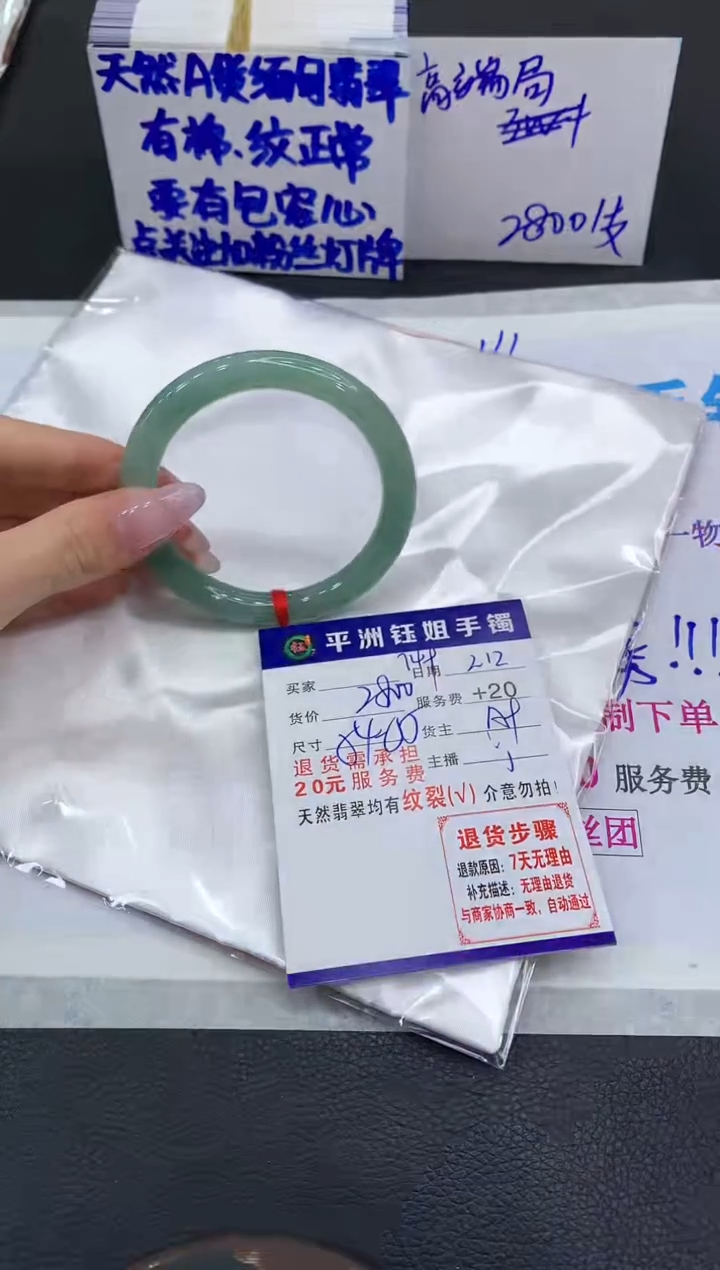 天然A货缅甸翡翠
有棉、纹正常
要有包容心
点关注加粉丝灯牌
高端局
2800/支
一物
!!!
制下单
服务费
丝团
平洲钰姐手镯
买家 日期 2.12
货价 2800 服务费 +20
尺寸 货主
退货需承担 主播
20元服务费
天然翡翠均有纹裂(√) 介意勿拍!
退货步骤
退款原因: 7天无理由
补充描述: 无理由退货
与商家协商一致，自动通过